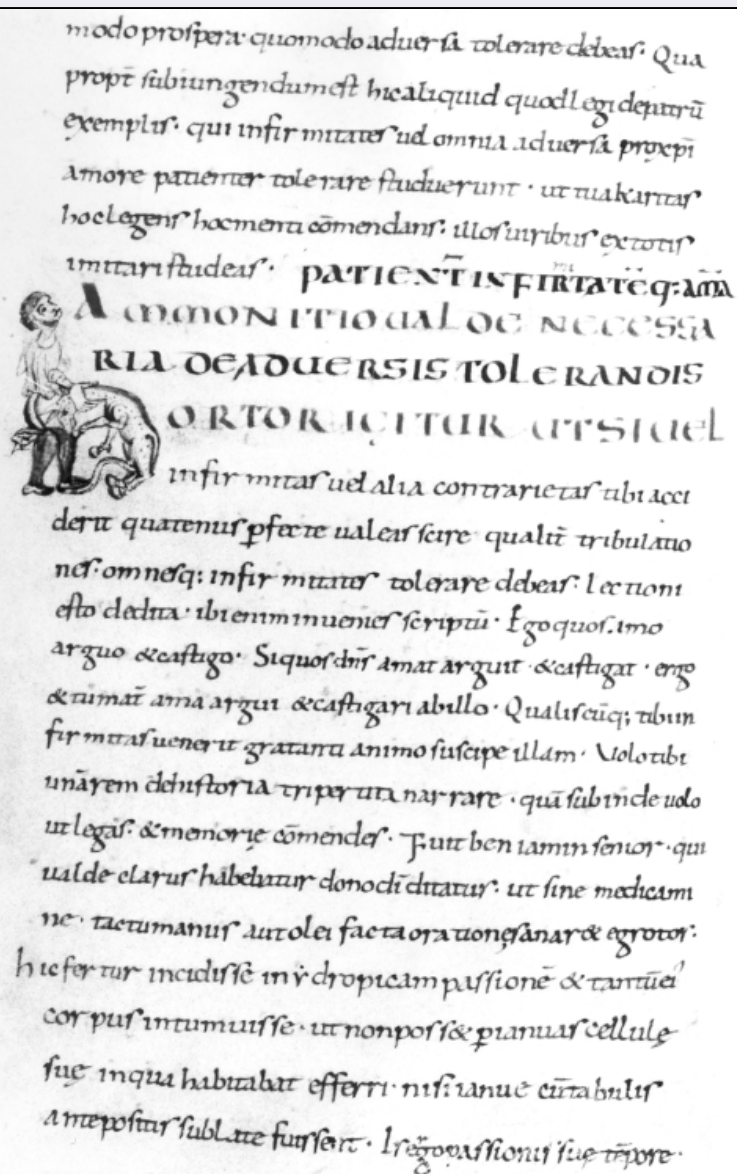 modo prospera quomodo adversa tolerare debeas. Qua
propt̄ subiungendum est hic aliquid quod legi de patrū
exemplis. qui infirmitates ul̄ omnia adversa pro xp̄i
amore patienter tolerare studuerunt. ut tua karitas
hoc legens hoc menti cōmendans. illos uiribus ex totis
imitari studeas. PATIENT̄ INFIRTATĒ Q: AMA
AMMONITIO UALDE NECESSA
RIA DE ADUERSIS TOLERANDIS
ORTOR IGITUR UT SI UEL
infirmitas uel alia contrarietas tibi acci
derit quatenus ꝑfecte ualeas scire qualit̄ tribulatio
nes. omnesq; infirmitates tolerare debeas. lectioni
esto dedita. ibi enim inuenies scriptū. Ego quos amo
arguo & castigo. Si quos dn̄s amat arguit & castigat. ergo
& tu mat̄ ama argui & castigari ab illo. Qualiscūq; tibi in
firmitas uenerit gratanti animo suscipe illam. Uolo tibi
unā rem de historia tripertita narrare. quā subinde uolo
ut legas. & memorie cōmendes. Fuit beniamin senior. qui
ualde clarus habebatur dono dī ditatus. ut sine medicami
ne. tactu manus aut olei facta orationę sanar& egrotos.
hic fertur incidisse in ydropicam passionē & tantū ei
corpus intumuisse. ut non poss& ꝑ ianuas cellulę
suę in qua habitabat efferri. nisi ianue cū tabulis
antepositis sublate fuissent. Is ergo passionis suę tēpore.